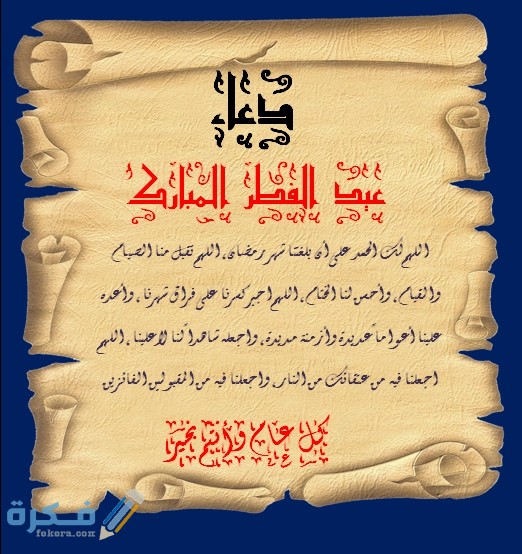 دعاء
عيد الفطر المبارك
اللهم لك الحمد على أن بلغتنا شهر رمضان، اللهم تقبل منا الصيام
والقيام، وأحسن لنا الختام، اللهم اجبر كسرنا على فراق شهرنا، وأعده
علينا أعواماً عديدة وأزمنة مديدة، واجعله شاهداً لنا لا علينا، اللهم
اجعلنا فيه من عتقائك من النار، واجعلنا فيه من المقبولين الفائزين
كل عام وأنتم بخير
فكرة
fekera.com